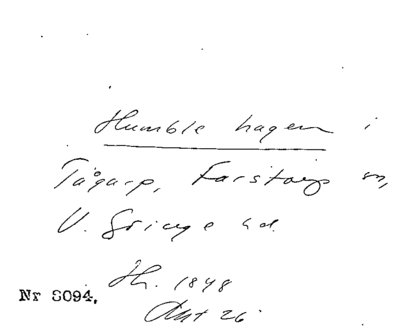 Humble hagen i
Tågarp, Farstorp sn,
V. Göinge hd.
Th. 1848
Nr 8094.
Akt 26